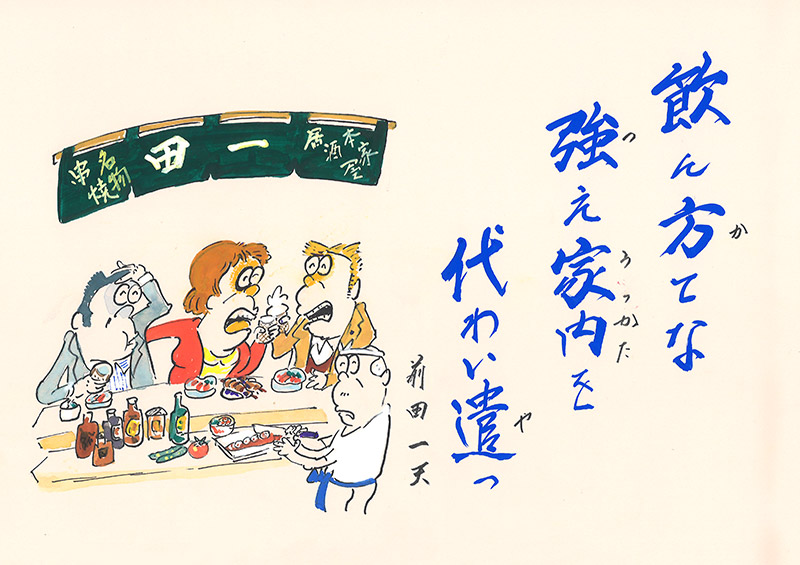 飲ん方てな
か
強え家内を
つ うっかた
代わい遣っ
や
前田一天
本家
居酒屋
一田
名物
串焼